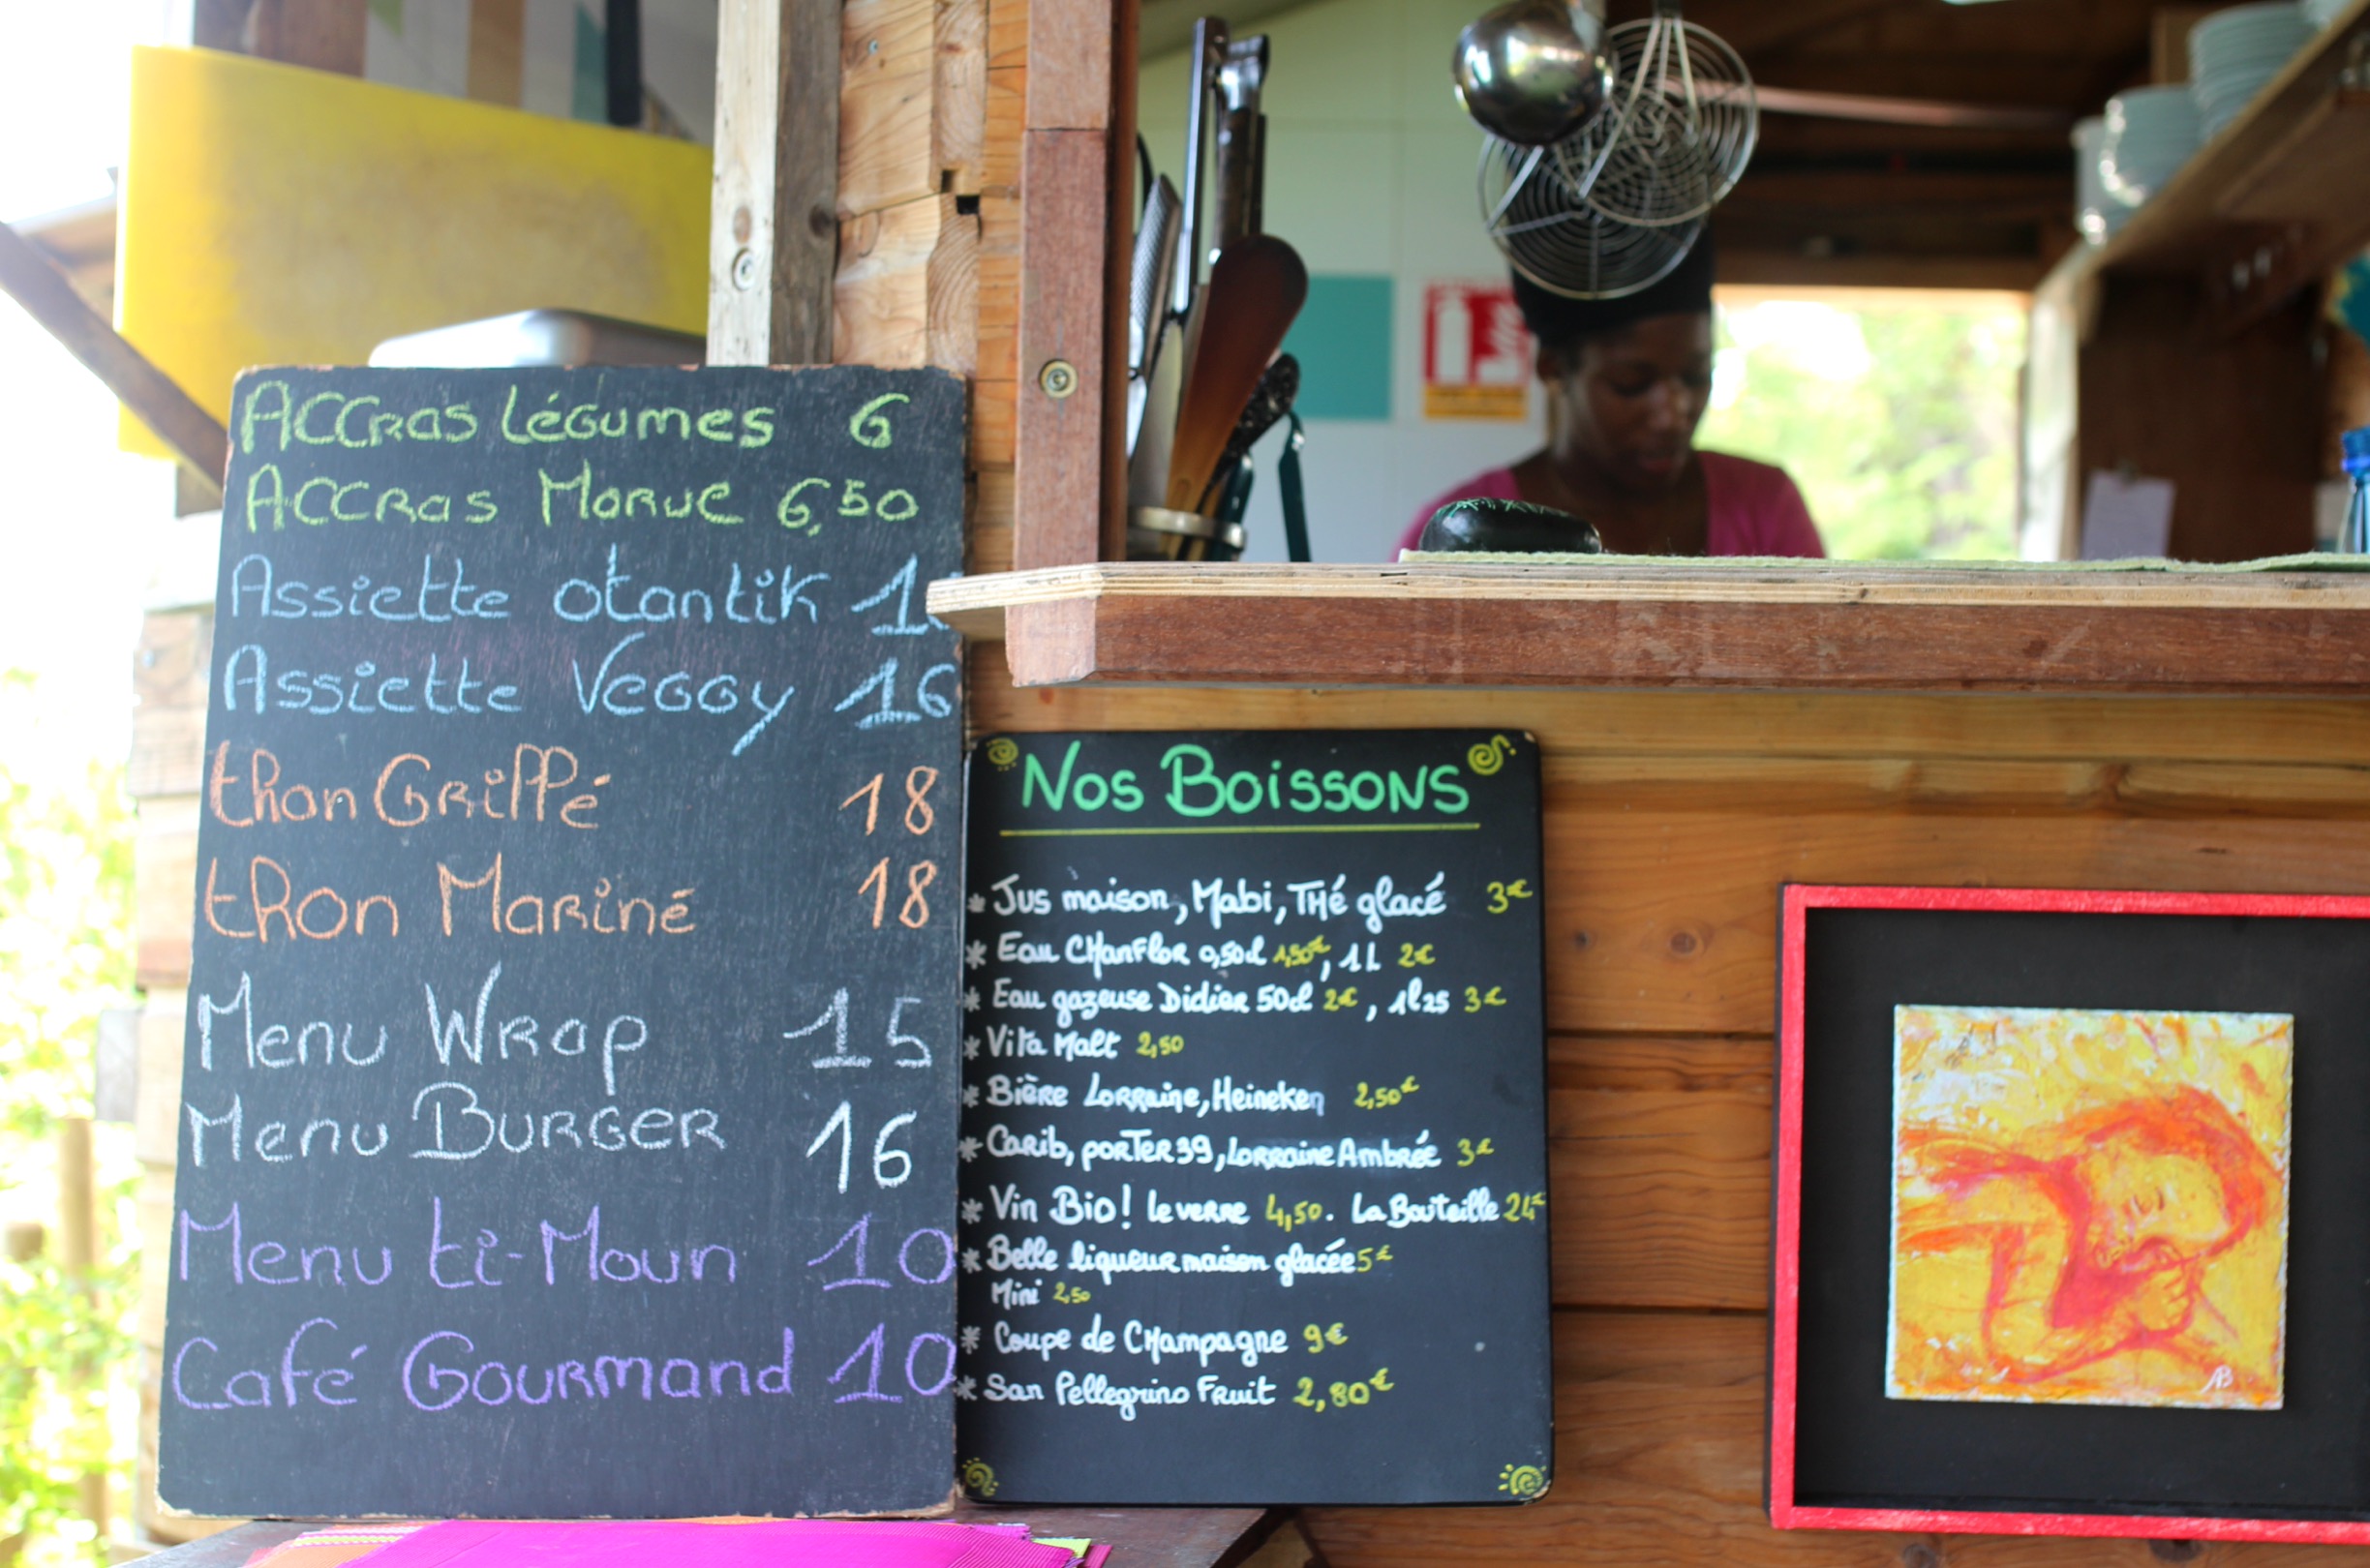 Accras Légumes 6
Accras Morue 6,50
Assiette otantik
Assiette Veggy 16
thon Grillé 18
thon Mariné 18
Menu Wrap 15
Menu Burger 16
Menu ti-Moun 10
Café Gourmand 10
Nos Boissons
* Jus maison, Mabi, Thé glacé 3€
* Eau Chanflor 0,50cl 1,50€, 1L 2€
* Eau gazeuse Didier 50cl 2€, 1l25 3€
* Vita Malt 2,50
* Bière Lorraine, Heineken 2,50€
* Carib, porter 39, Lorraine Ambrée 3€
* Vin Bio! le verre 4,50. La Bouteille 24€
* Belle liqueur maison glacée 5€
Mini 2,50
* Coupe de Champagne 9€
* San Pellegrino Fruit 2,80€
AB